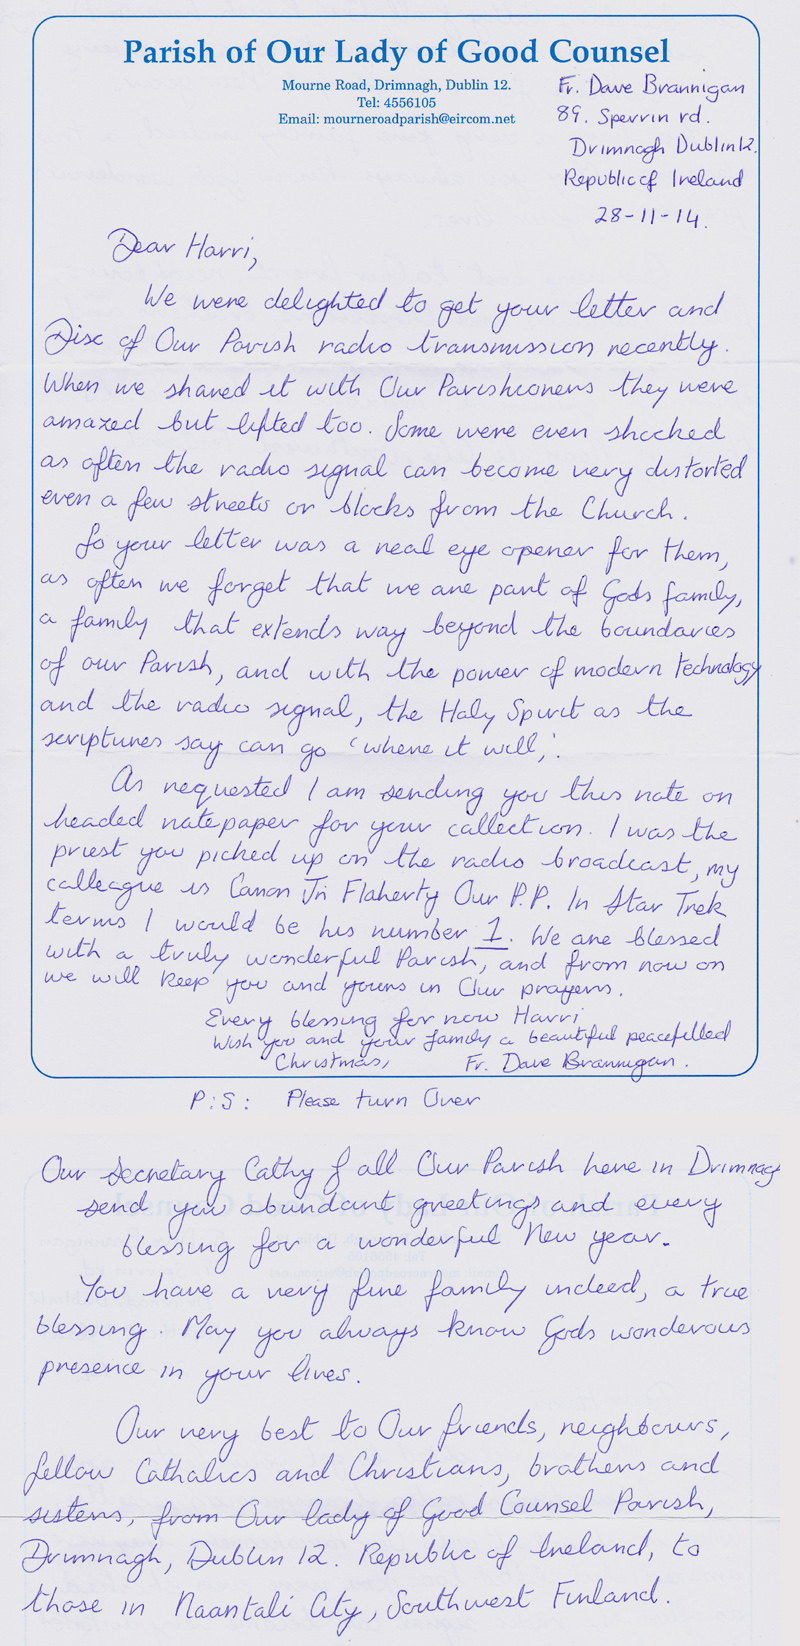 Parish of Our Lady of Good Counsel
Mourne Road, Drimnagh, Dublin 12.
Tel: 4556105
Email: mourneroadparish@eircom.net
Fr. Dave Brannigan
89. Sperrin rd.
Drimnagh Dublin 12.
Republic of Ireland
28-11-14.
Dear Harri,
We were delighted to get your letter and
Disc of Our Parish radio transmission recently.
When we shared it with Our Parishioners they were
amazed but lifted too. Some were even shocked
as often the radio signal can become very distorted
even a few streets or blocks from the Church.
So your letter was a real eye opener for them,
as often we forget that we are part of Gods family,
a family that extends way beyond the boundaries
of our Parish, and with the power of modern technology
and the radio signal, the Holy Spirit as the
scriptures say can go 'where it will,'.
As requested I am sending you this note on
headed notepaper for your collection. I was the
priest you picked up on the radio broadcast, my
colleague is Canon Flaherty Our P.P. In Star Trek
terms I would be his number 1. We are blessed
with a truly wonderful Parish, and from now on
we will keep you and yours in Our prayers.
Every blessing for now Harri
Wish you and your family a beautiful peacefilled
Christmas, Fr. Dave Brannigan.
P:S: Please turn Over
Our Secretary Cathy & all Our Parish here in Drimnagh
send you abundant greetings and every
blessing for a wonderful New year.
You have a very fine family indeed, a true
blessing. May you always know Gods wonderous
presence in your lives.
Our very best to Our friends, neighbours,
fellow Catholics and Christians, brothers and
sisters, from Our lady of Good Counsel Parish,
Drimnagh, Dublin 12. Republic of Ireland, to
those in Naantali City, Southwest Finland.